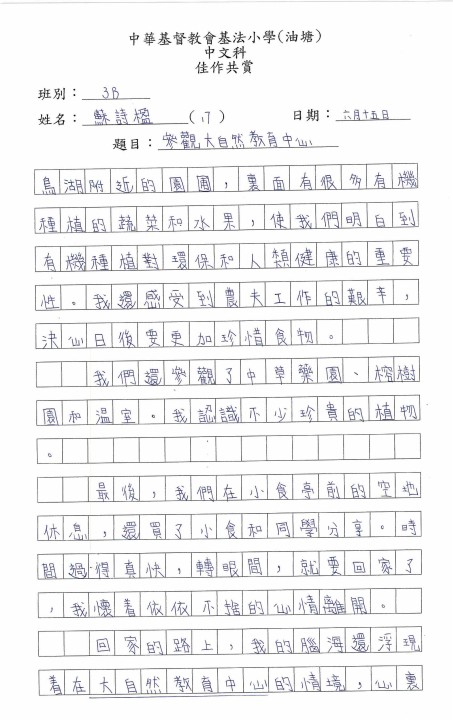 中華基督教會基法小學(油塘)
中文科
佳作共賞
班別：3B
姓名：蘇詩楹(17) 日期：六月十五日
題目：參觀大自然教育中心
鳥湖附近的園圃，裏面有很多有機
種植的蔬菜和水果，使我們明白到
有機種植對環保和人類健康的重要
性。我還感受到農夫工作的艱辛，
決心日後要更加珍惜食物。
我們還參觀了中草藥園、榕樹
園和溫室。我認識不少珍貴的植物
。
最後，我們在小食亭前的空地
休息，還買了小食和同學分享。時
間過得真快，轉眼間，就要回家了
，我懷着依依不捨的心情離開。
回家的路上，我的腦海還浮現
着在大自然教育中心的情境，心裏